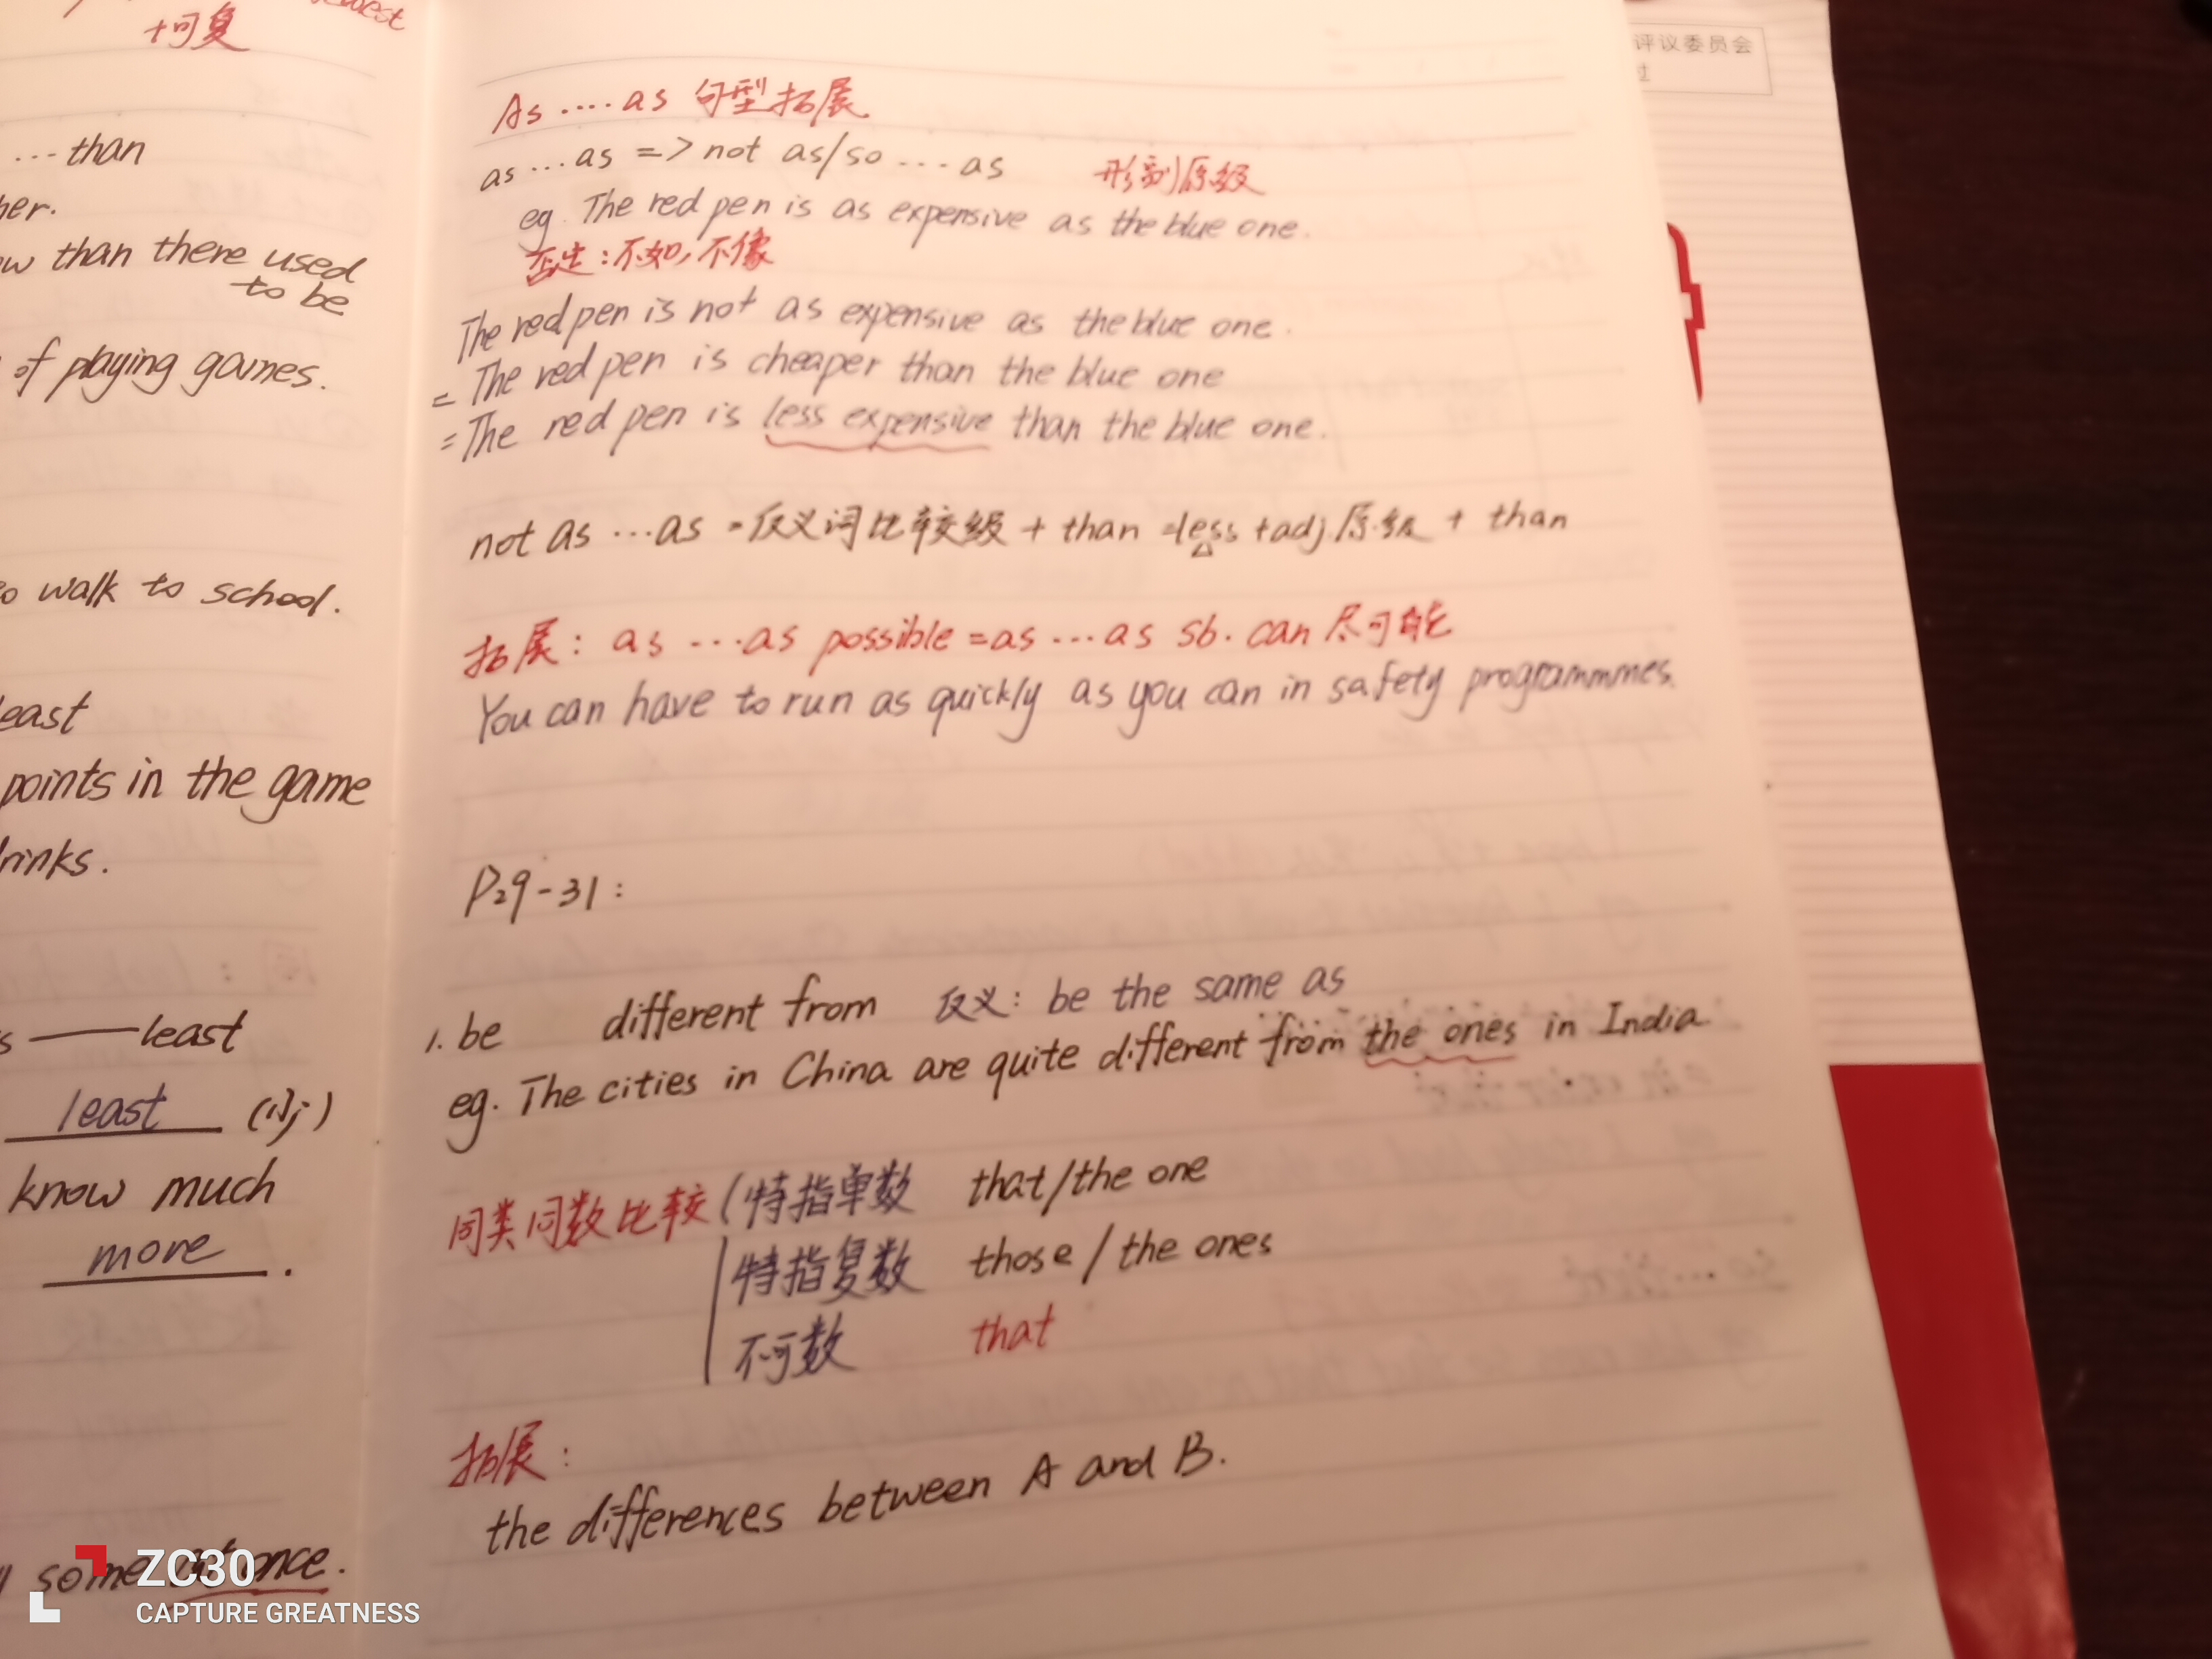 +可复
...than
her.
than there used
to be
of playing games.
walk to school.
least
points in the game
drinks.
least
least
know much
more.
some at once.
As ....as 句型拓展
as...as => not as/so ... as 形副原级
eg. The red pen is as expensive as the blue one.
否定:不如,不像
The red pen is not as expensive as the blue one.
= The red pen is cheaper than the blue one
= The red pen is less expensive than the blue one.
not as ...as = 反义词比较级 + than =less +adj原级 + than
拓展: as ...as possible =as ...as sb. can 尽可能
You can have to run as quickly as you can in safety programmmes.
P29-31:
1. be different from 反义: be the same as
eg. The cities in China are quite different from the ones in India
同类同数比较 特指单数 that/the one
特指复数 those / the ones
不可数 that
拓展:
the differences between A and B.
评议委员会
过
ZC30
CAPTURE GREATNESS